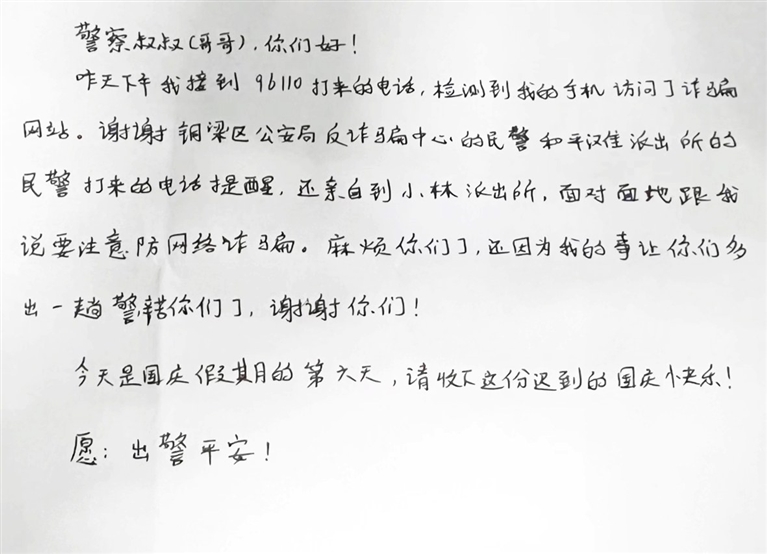 警察叔叔(哥哥),你们好!
昨天下午我接到96110打来的电话,检测到我的手机访问了诈骗
网站。谢谢铜梁区公安局反诈骗中心的民警和平汉佳派出所的
民警打来的电话提醒,还亲自到小林派出所,面对面地跟我
说要注意防网络诈骗。麻烦你们了,还因为我的事让你们多
出一趟警,辛苦你们了,谢谢你们!
今天是国庆假期的第六天,请收下这份迟到的国庆快乐!
愿:出警平安!